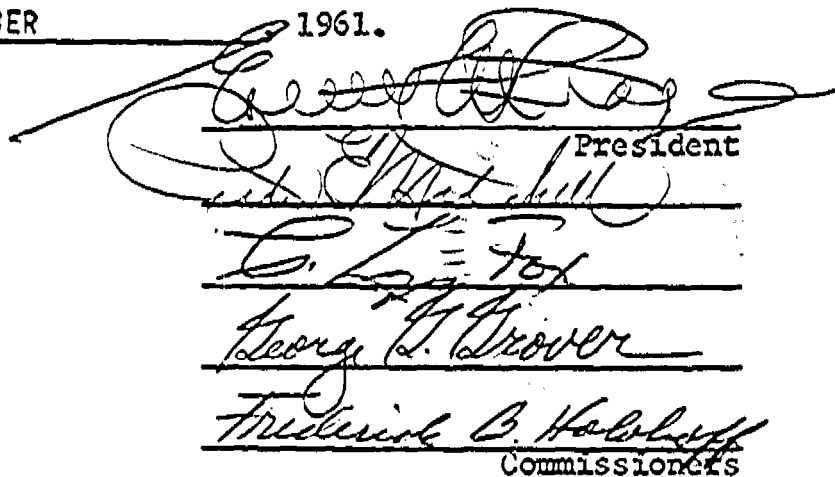 BER 1961.
President
E. Mitchell
C. Lyn Fox
George G. Grover
Frederick B. Holoboff
Commissioners